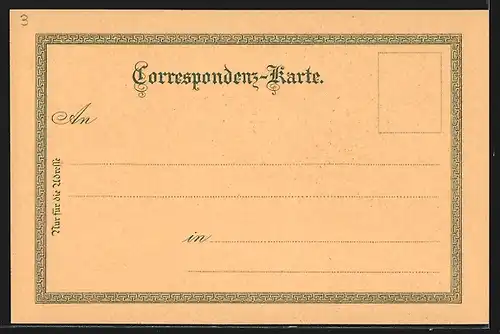 3
Correspondenz-Karte.
An
Nur für die Adresse
in